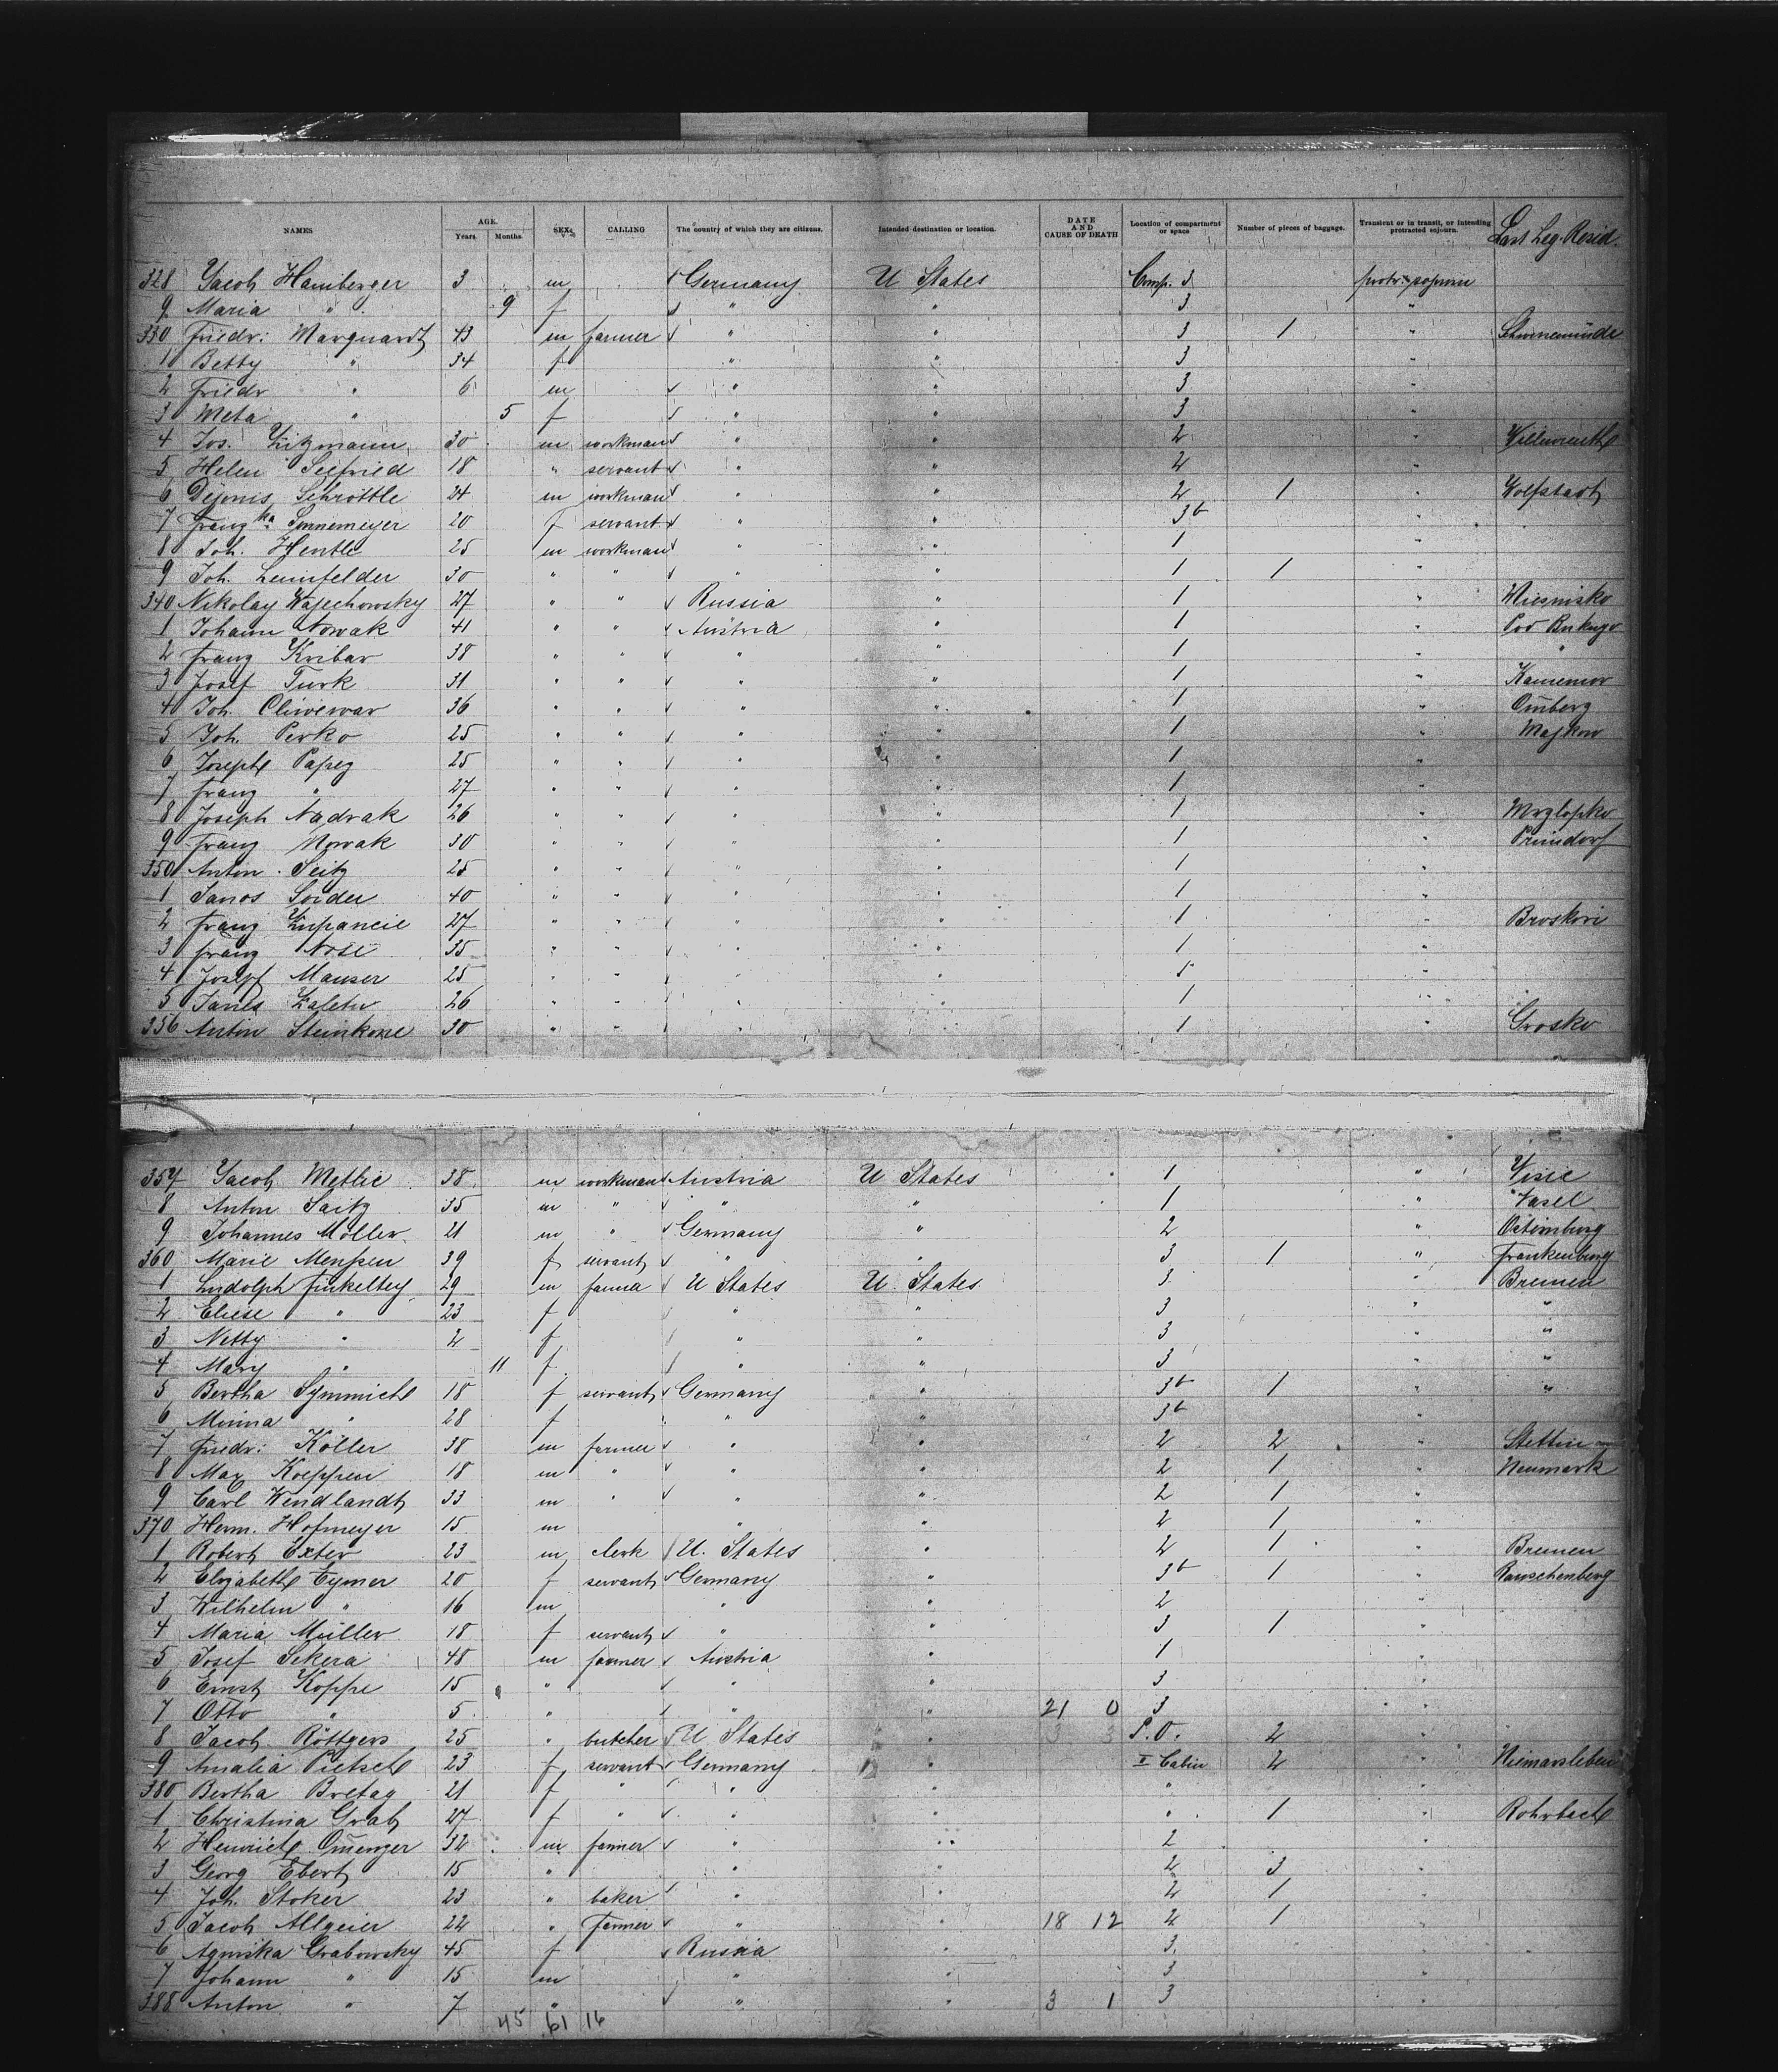 NAMES AGE. Years. Months. SEX. CALLING The country of which they are citizens. Intended destination or location. DATE AND CAUSE OF DEATH Location of compartment or space Number of pieces of baggage. Transient or in transit, or intending protracted sojourn. Last Leg. Resid.
328 Jacob Hamberger 3 m Germany U States Comp. 3
9 Maria " 9 f " " 3 "
330 Friedr: Marquardt 43 m farmer " " 3 1 "
1 Betty " 34 f " " 3 "
2 Friedr " 6 m " " 3 "
3 Meta " 5 f " " 3 "
4 Jos. Zitzmann 30 m workman " " 2 "
5 Helen Seefried 18 " servant " " 2 "
6 Schröttle 24 m workman " " 2 1 " Wolfstadt
7 Franzka Sonnemeyer 20 f servant " " 3b "
8 Joh. Hentle 25 m workman " " 1 "
9 Joh. Leinfelder 30 " " " " 1 1 "
340 Nikolay Wajechowsky 27 " " Russia " 1 "
1 Johann Nowak 41 " " Austria " 1 "
2 Franz Kribar 38 " " " " 1 " "
3 Josef Turk 31 " " " " 1 "
4 Joh. 36 " " " " 1 "
5 Joh. Perko 25 " " " " 1 " Majkow
6 Joseph Papez 25 " " " " 1 "
7 Franz " 27 " " " " 1 "
8 Joseph Nadrak 26 " " " " 1 "
9 Franz Nowak 30 " " " " 1 "
350 Anton Seitz 25 " " " " 1 "
1 Janos 40 " " " " 1 "
2 Franz Zupancic 27 " " " " 1 "
3 Franz Nose 35 " " " " 1 "
4 Josef Mauser 25 " " " " 1 "
5 26 " " " " 1 "
356 Anton 30 " " " " 1 " Grosko
357 Jacob Metlic 38 m workman Austria U States 1 "
8 Anton Saitz 35 m " " " 1 "
9 Johannes Möller 21 m " Germany " 2 "
360 Marie 39 f servant " " 3 1 " Frankenburg
1 Ludolph Finkeltey 29 m farmer U States U. States 3 " Bremen
2 Eliese " 23 f " " 3 " "
3 Netty " 2 f " " 3 " "
4 Mary " 11 f " " 3 " "
5 Bertha Symmich 18 f servant Germany " 3b 1 " "
6 Minna " 28 f " " 3b "
7 Friedr: Köller 38 m farmer " " 2 2 " Stettin
8 Max Koeppen 18 m " " " 2 1 " Neumark
9 Carl Wendlandt 33 m " " " 2 1 "
370 Herm. Hofmeyer 15 m " " 2 1 "
1 Robert Exter 23 m clerk U. States " 2 1 " Bremen
2 Elizabeth Eymer 20 f servant Germany " 3b 1 " Rauschenberg
3 Wilhelm " 16 m " " 2 "
4 Maria Müller 18 f servant " " 3 1 "
5 Josef Sekera 48 m farmer Austria " 1 "
6 Ernst Koppe 15 " " " 3 "
7 Otto " 5 " " " 21 0 3 "
8 Jacob Röttgers 25 " butcher U States " 3 3 2 "
9 Amalia Pietsch 23 f servant Germany " I Cabin 2 "
380 Bertha Bretag 21 f " " " " "
1 Christina Grab 27 f " " " " 1 " Rohrbach
2 Heinrich 32 m farmer " " 2 "
3 Georg Ebert 15 " " " 2 3 "
4 Joh. Stoker 23 " baker " " 2 1 "
5 Jacob Allgeier 22 " farmer " " 18 12 2 1 "
6 Agniska Grabowsky 45 f Russia " 3 "
7 Johann " 15 m " " 3 "
388 Anton " 7 " " " 3 1 3 "
45 61 16